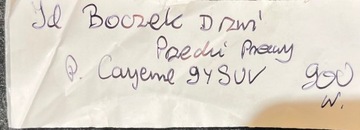 Id Boczek Drzwi
Przedni Prawy
P. Cayenne 9YSUV 900
W.